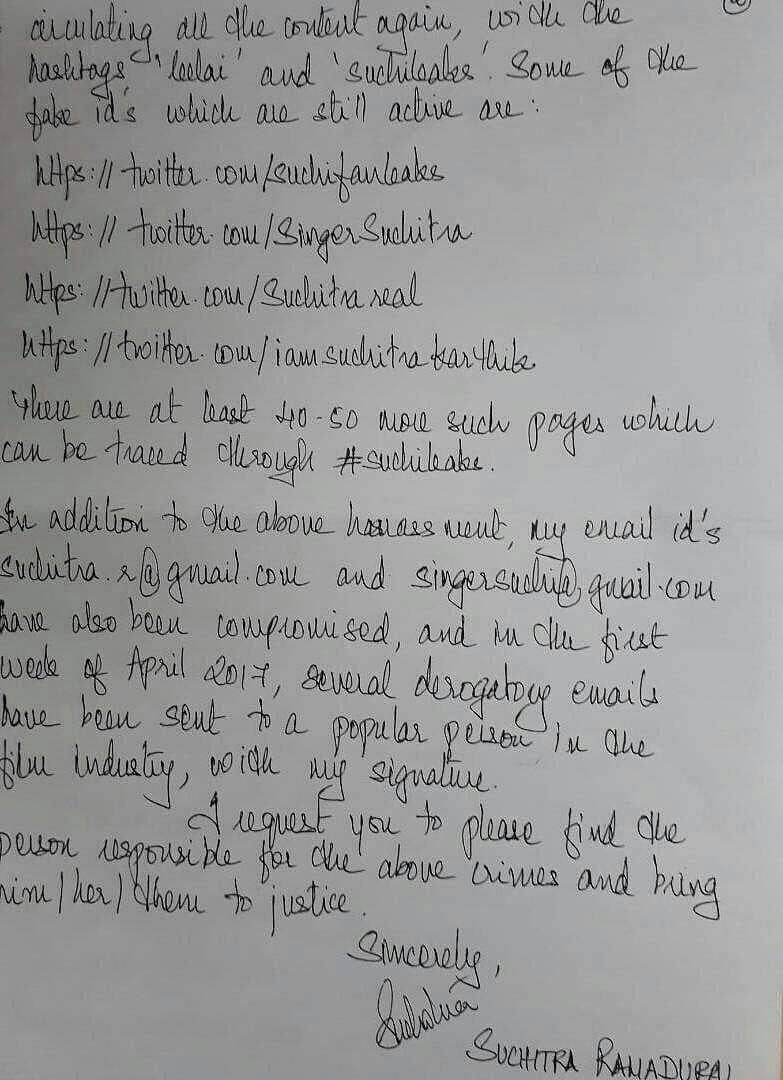 circulating all the content again, with the
hashtags 'leelai' and 'suchileaks'. Some of the
fake id's which are still active are:
https://twitter.com/suchifanleaks
https://twitter.com/SingerSuchitra
https://twitter.com/Suchitrareal
https://twitter.com/iamsuchitrakarthik
There are at least 40-50 more such pages which
can be traced through #suchileaks.
In addition to the above harassment, my email id's
suchitra.r@gmail.com and singersuchi@gmail.com
have also been compromised, and in the first
week of April 2017, several derogatory emails
have been sent to a popular person in the
film industry, with my signature.
I request you to please find the
person responsible for the above crimes and bring
him/her/them to justice.
Sincerely,
Suchitra
SUCHITRA RAMADURAI